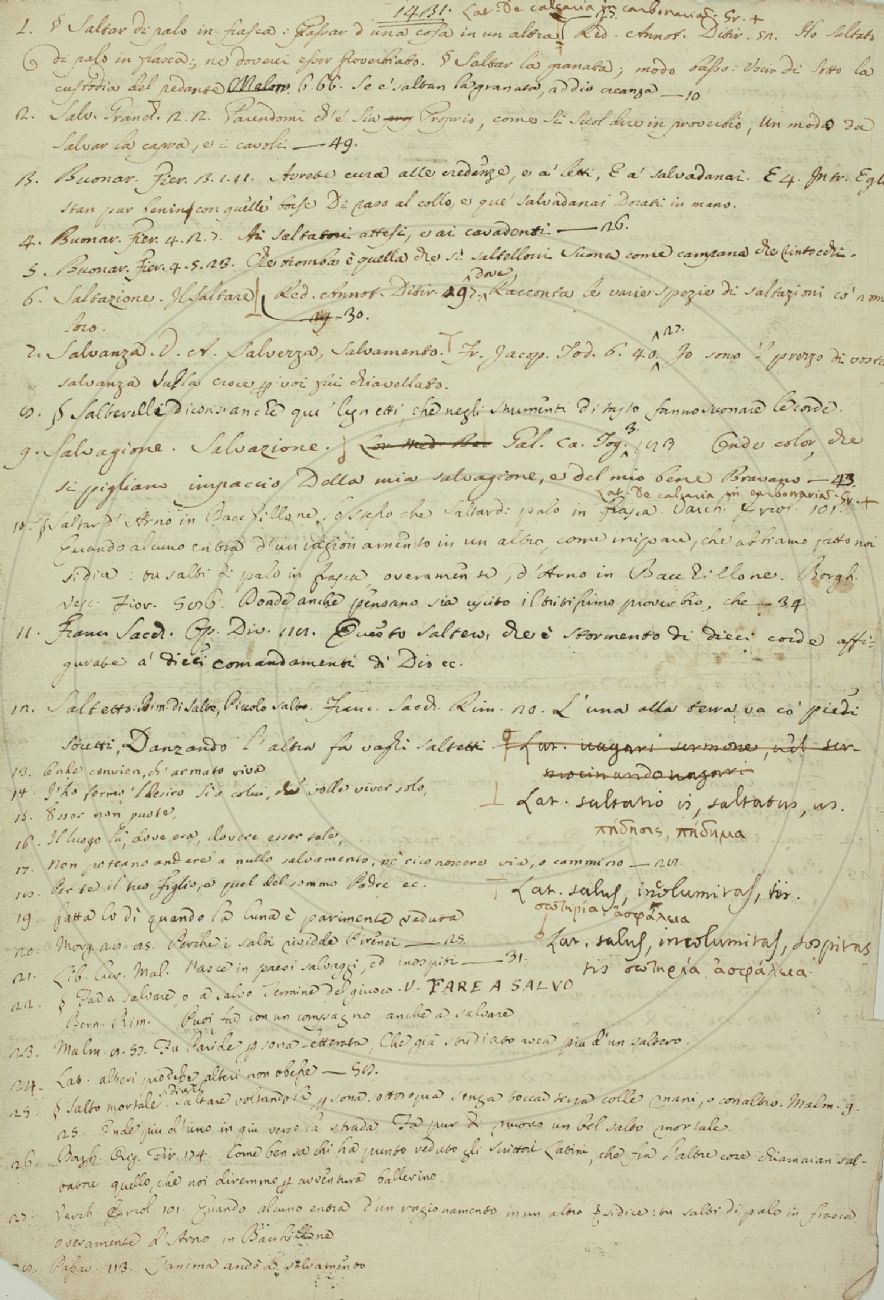 1431. Lat. De calcaria in carbonariam. Gr. +
1. § Saltar di palo in frasca: Passar d'una cosa in un altra Red. Annot. Ditir. 52. Ho saltato
di palo in frasca; nè dovevi esser proverbiato. § Saltar la granata; modo basso: Uscir di sotto la
custodia del pedante Malm. 6. 66. Se è saltan la granata, addio creanza — 10
2. Salv. Granch. 2. 2. Parendomi ch'e' sia Proprio, come si suol dire in proverbio, Un modo da
Salvar la capra, e i cavoli — 49.
3. Buonar. Fier. 3. 1. 11. Avrete cura alle credenze, e a' letti, E a' salvadanai. E 4. Intr. Egli
stan pur benin con quelle borse Di capo al collo, e que' salvadanai Dorati in mano.
4. Buonar. Fier. 4. 2. 7. Ai saltatori attesi, e ai cavadenti — 26.
5. Buonar. Fier. 4. 5. 23. Che tromba è quella che si saltelloni Suona come campana che rintocchi.
6. Saltazione. Il saltare Red. Annot. Ditir. 197. dove Racconta le varie spezie di saltazioni co' nomi
loro. — 30.
7. Salvanza. V. A. Salvezza, Salvamento. Fr. Jacop. Tod. 6. 40. 27. Io sono 'l prezzo di vostra
salvanza Sulla croce p voi fui chiavellato.
8. § Salterelli diconsi anche que' legnetti, che negli strumenti di tasto fanno suonare le corde.
9. Salvagione. Salvazione. Gal. Ca. Tog. 3. 183 Onde color, che
si pigliano impaccio Della mia salvagione, e del mio bene Bravano — 43
Lat. De calcaria in carbonariam. Gr. +
10. § Saltar d'Arno in Bacchillone, lo stesso che Saltar di palo in frasca. Varch. Ercol. 101.
Quando alcuno entra d'un ragionamento in un altro, come mi pare, che abbiamo fatto noi
si dice: tu salti di palo in frasca, overamente, d'Arno in Bacchillone. Borgh.
Vesc. Fior. 586. Donde anche pensano sia uscito il tritissimo proverbio, che — 34
11. Franc. Sacch. Op. Div. 121. Questo saltero, che è stormento di dieci corde affi-
gurate a' dieci comandamenti di Dio ec.
12. Saltetto. Dim. di Salto, Piccolo salto. Franc. Sacch. Rim. 20. L'una alla terra va co' piedi
stretti, Danzando l'altra fa vaghi saltetti Lat. vagari sermone, vel ser-
mocinando vagari
13. Onde convien, ch'armato viva
14. I' ho fermo 'l desiro Sì a colui, che volle viver solo,
Lat. saltatio is, saltatus, us.
15. Esser non puote,
πήδησις, πήδημα
16. Il luogo là, dove era, dovere esser sale,
17. Non poteano andare a nullo salvamento, nè riconoscere via, o cammino — 21.
18. Per te il tuo figlio, e quel del sommo Padre ec. Lat. salus, incolumitas, tis.
σωτηρία ἀσφάλεια
19. Fatta lo dì quando la luna è parimente veduta
20. Morg. 27. 85. Perchè i salti ricidde Pirenei — 25 Lat. salus, incolumitas, sospitas
tis σωτηρία ἀσφάλεια.
21. Lib. Cur. Mal. Nasce in paesi salvaggi, ed inospiti — 31.
22. § Far a salvare, o a salvo Termine del giuoco. V. FARE A SALVO
Bern. Rim. Puoi far con un compagno anche a salvare
23. Malm. 1. 57. Fu Paride p sona letterata, Che già studiato avea più d'un saltero.
24. Lab. alberi prodebe, altri non obesse — 52.
25. § Salto mortale diciam Saltare voltando la p sona sottosopra senza toccar terra colle mani, o con altro. Malm. 9.
25. Onde più d'uno in giù verso la strada Fa pur di nuovo un bel salto mortale.
26. Borgh. Orig. Fir. 174. Come ben sa chi ha punto veduto gli scrittori Latini, che fra l'altre cose chiamavan sal-
tatore quello, che noi diremmo p avventura ballerino.
27. Varch. Ercol. 101. Quando alcuno entra d'un ragionamento in un altro si dice: tu salti di palo in frasca
overamente d'Arno in Bacchillone
28. Passav. 113. L'anima andò a salvamento